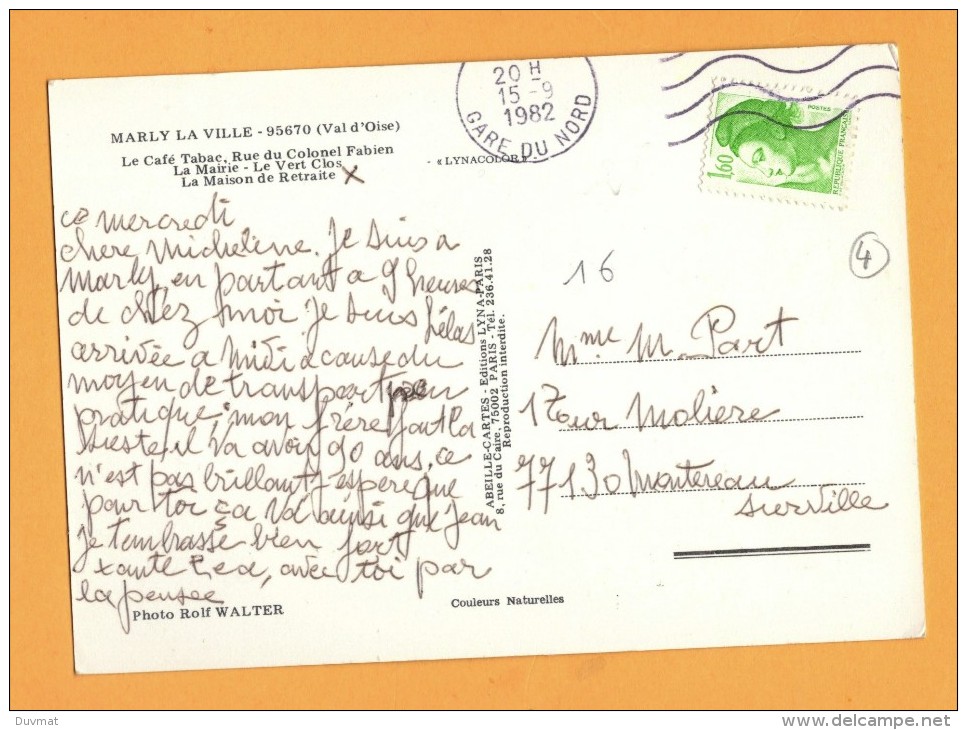 MARLY LA VILLE - 95670 (Val d'Oise)
Le Café Tabac, Rue du Colonel Fabien
La Mairie - Le Vert Clos
La Maison de Retraite x
- « LYNACOLOR »
20 H
15 -9
1982
GARE DU NORD
1,60
POSTES
REPUBLIQUE FRANÇAISE
4
16
ce mercredi
chere Micheline. Je suis a
Marly, en partant a 9 heures
de chez moi je suis hélas
arrivée a Midi a cause du
moyen de transport peu
pratique, mon frère fait la
sieste il va avoir 90 ans, ce
n'est pas brillant j'espere que
pour toi ça va ainsi que Jean
je t'embrasse bien fort
avec toi par
la pensee
Photo Rolf WALTER
Couleurs Naturelles
ABEILLE-CARTES - Editions LYNA-PARIS
8, rue du Caire, 75002 PARIS - Tél. 236.41.28
Reproduction interdite.
Mme M. Part
1 Tour Moliere
77130 Montereau
Surville
Duvmat
delcampe.net